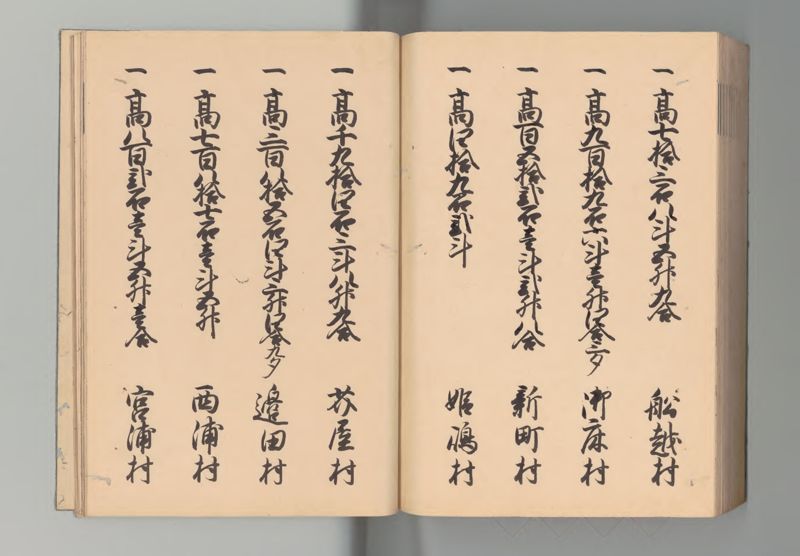 一高七拾三石八斗五升九合 船越村
一高九百拾九石六斗壱升四合三夕 御床村
一高百五拾弐石壱斗弐升八合 新町村
一高四拾九石弐斗 姫嶋村
一高千九拾四石三斗八升九合 芥屋村
一高三百八拾五石四斗三升四合九夕 邊田村
一高七百八拾七石壱斗五升 西浦村
一高八百弐石壱斗五升壱合 宮浦村